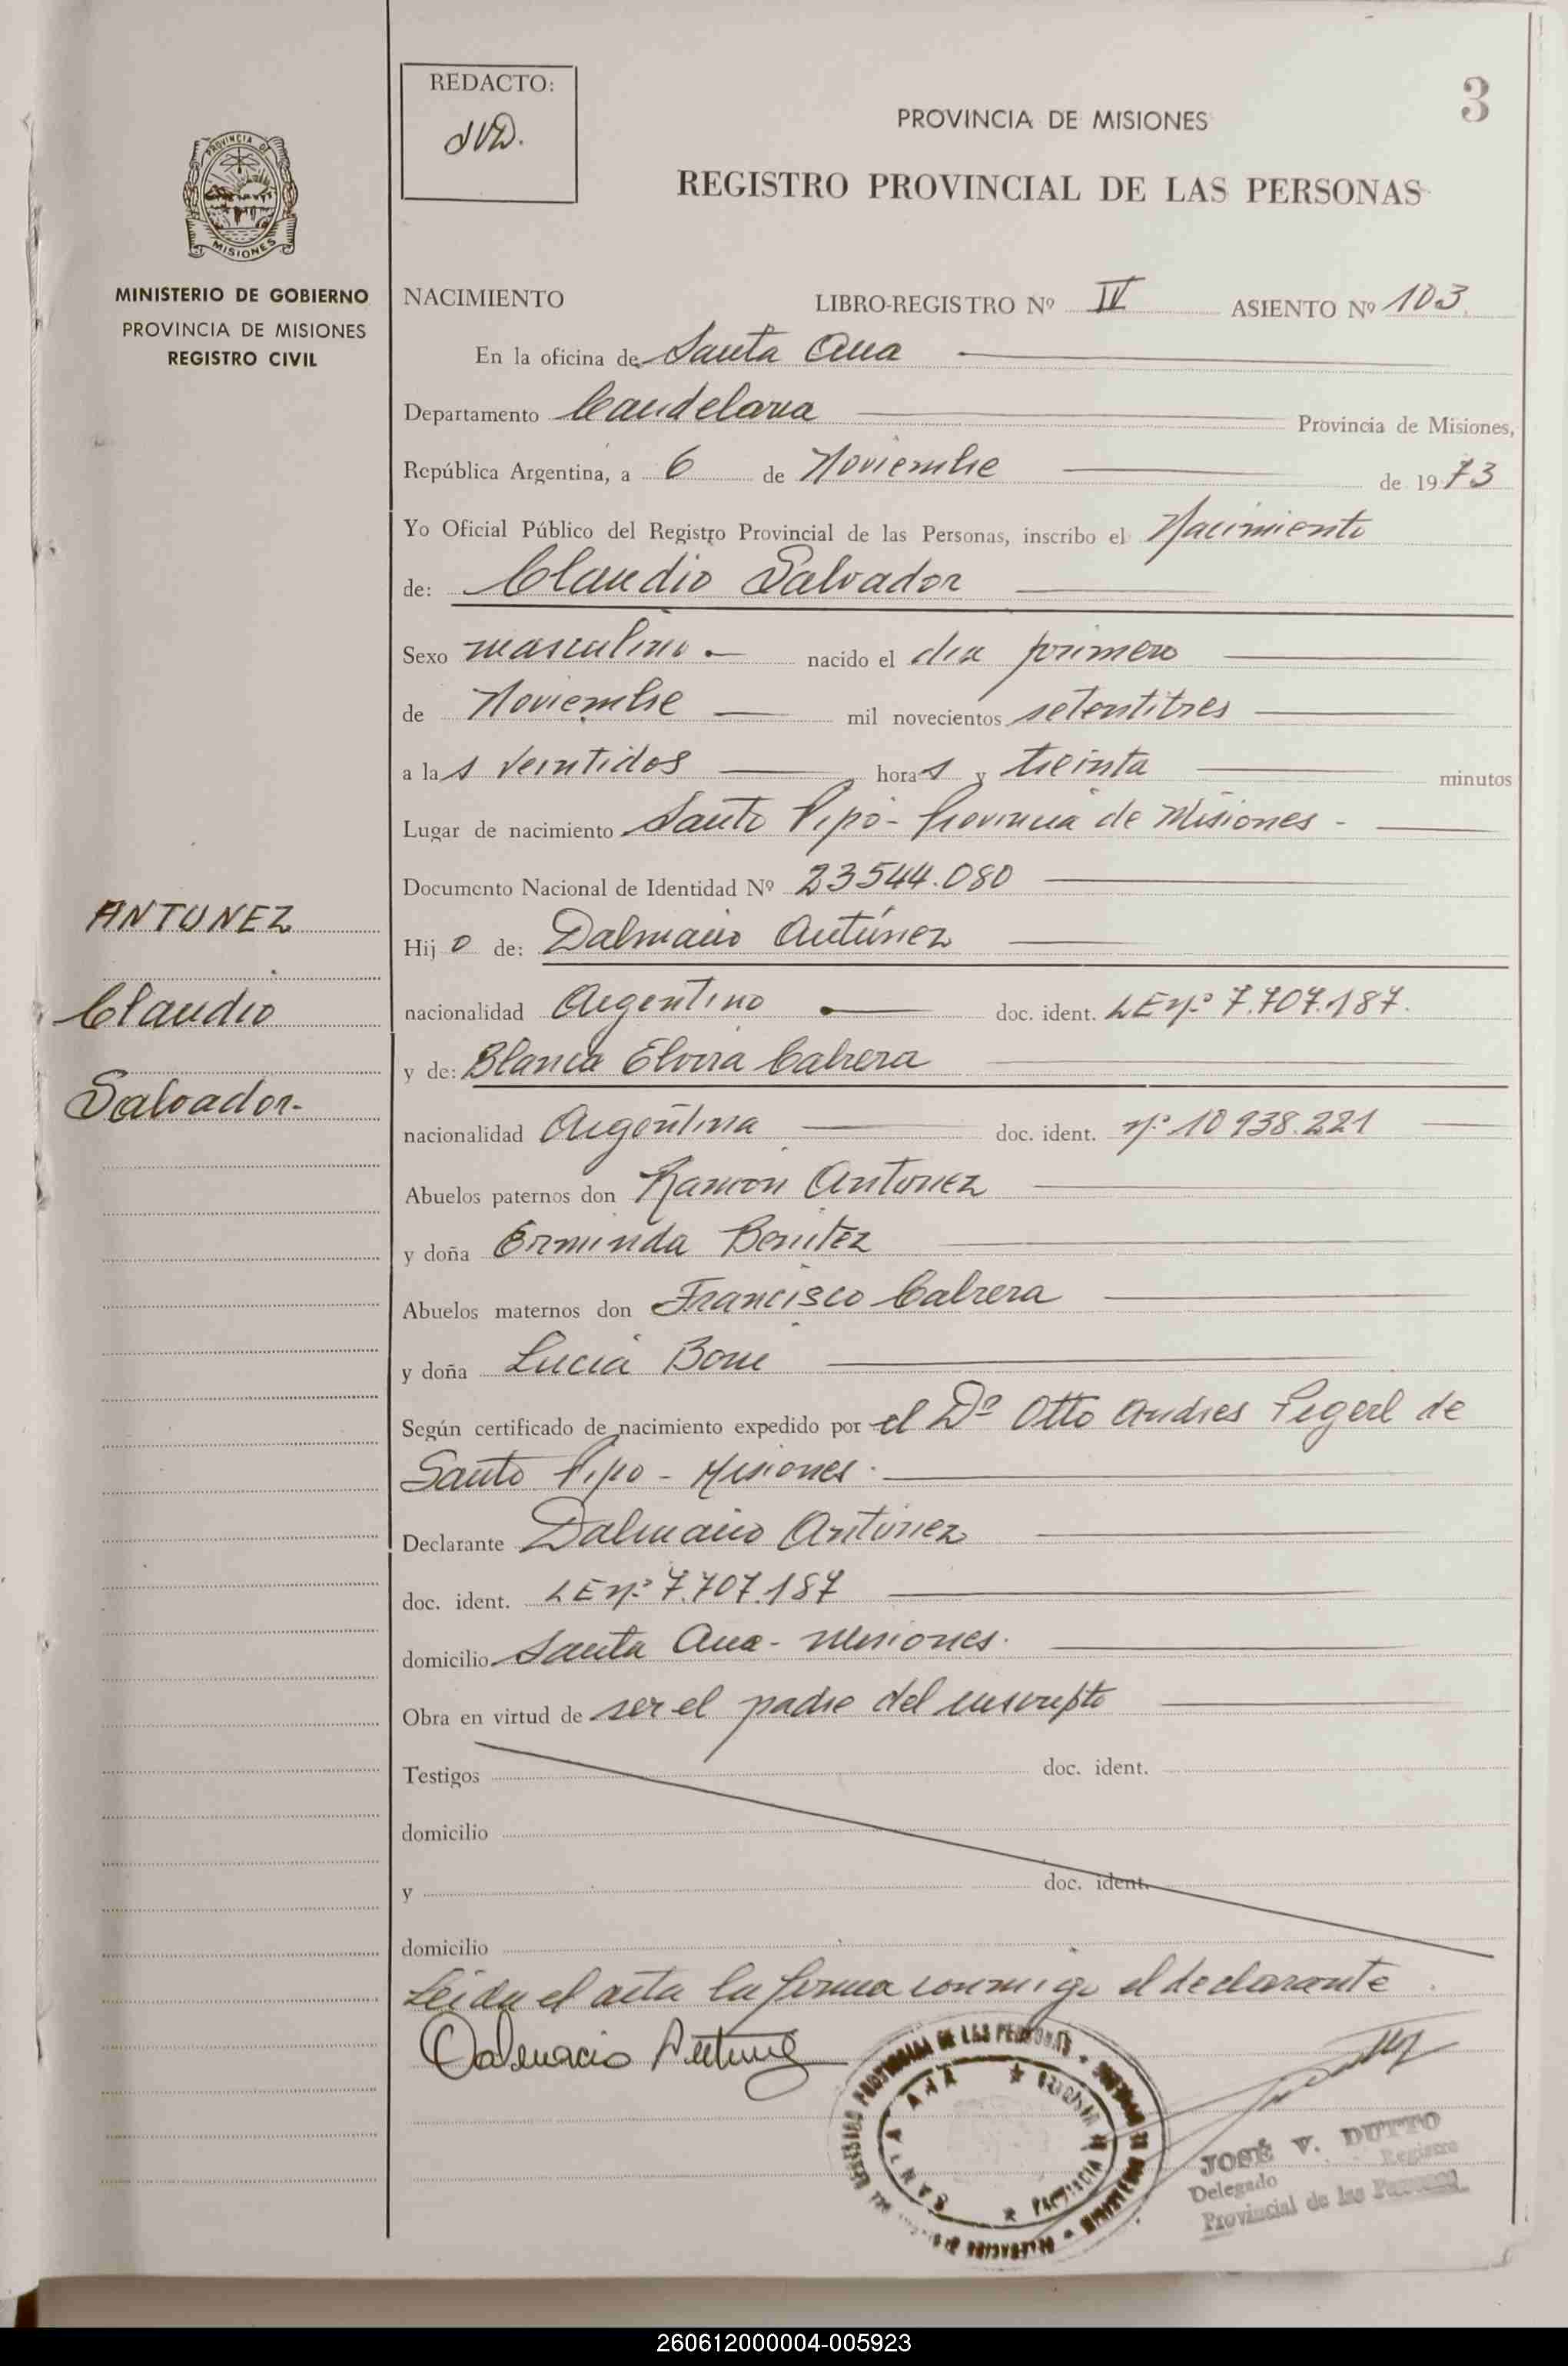 3
REDACTO:
JVD.
PROVINCIA DE MISIONES
REGISTRO PROVINCIAL DE LAS PERSONAS
PROVINCIA DE
MISIONES
MINISTERIO DE GOBIERNO
PROVINCIA DE MISIONES
REGISTRO CIVIL
NACIMIENTO LIBRO-REGISTRO Nº IV ASIENTO Nº 103.
En la oficina de Santa Ana
Departamento Candelaria Provincia de Misiones,
República Argentina, a 6 de Noviembre de 1973
Yo Oficial Público del Registro Provincial de las Personas, inscribo el Nacimiento
de: Claudio Salvador
Sexo masculino.- nacido el día primero
de Noviembre mil novecientos setentitres
a las veintidos horas y treinta minutos
Lugar de nacimiento Santo Pipó - Provincia de Misiones -
Documento Nacional de Identidad Nº 23544.080
ANTUNEZ
Claudio
Salvador.-
Hijo de: Dalmacio Antúnez
nacionalidad Argentino doc. ident. LE nº 7.707.187.
y de: Blanca Elvira Cabrera
nacionalidad Argentina doc. ident. nº 10938.221
Abuelos paternos don Ramón Antunez
y doña Erminda Benitez
Abuelos maternos don Francisco Cabrera
y doña Lucia Boni
Según certificado de nacimiento expedido por el Dº Otto Andres de
Santo Pipo - Misiones.
Declarante Dalmacio Antúnez
doc. ident. LE nº 7.707.187
domicilio Santa Ana - Misiones.
Obra en virtud de ser el padre del inscripto
Testigos doc. ident.
domicilio
y doc. ident.
domicilio
Leida el acta la firma conmigo el declarante
Dalmacio Antunez
PROVINCIAL DE LAS PERSONAS
SANTA ANA
PROVINCIA DE MISIONES
JOSÉ V. DUTTO
Delegado Registro
Provincial de las Personas
260612000004-005923